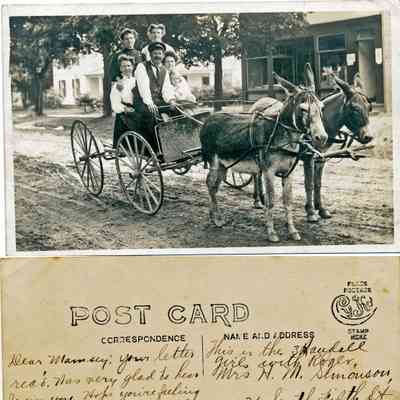 POST CARD
PLACE
POSTAGE
STAMP
HERE
CORRESPONDENCE
NAME AND ADDRESS
Dear Mamsey: Your letter
rec'd. Was very glad to hear
from you. Hope you're feeling
This is the 3 Randall
girls with Roger
Mrs H. M. Simonson